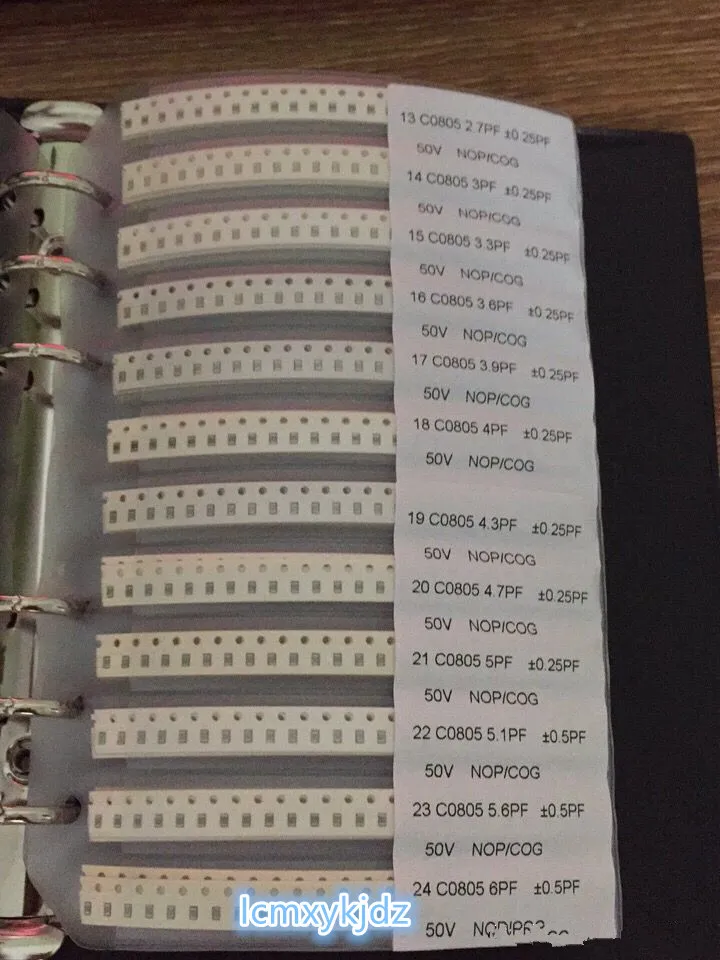 13 C0805 2.7PF ±0.25PF
50V NOP/COG
14 C0805 3PF ±0.25PF
50V NOP/COG
15 C0805 3.3PF ±0.25PF
50V NOP/COG
16 C0805 3.6PF ±0.25PF
50V NOP/COG
17 C0805 3.9PF ±0.25PF
50V NOP/COG
18 C0805 4PF ±0.25PF
50V NOP/COG
19 C0805 4.3PF ±0.25PF
50V NOP/COG
20 C0805 4.7PF ±0.25PF
50V NOP/COG
21 C0805 5PF ±0.25PF
50V NOP/COG
22 C0805 5.1PF ±0.5PF
50V NOP/COG
23 C0805 5.6PF ±0.5PF
50V NOP/COG
24 C0805 6PF ±0.5PF
50V
lcmxykjdz